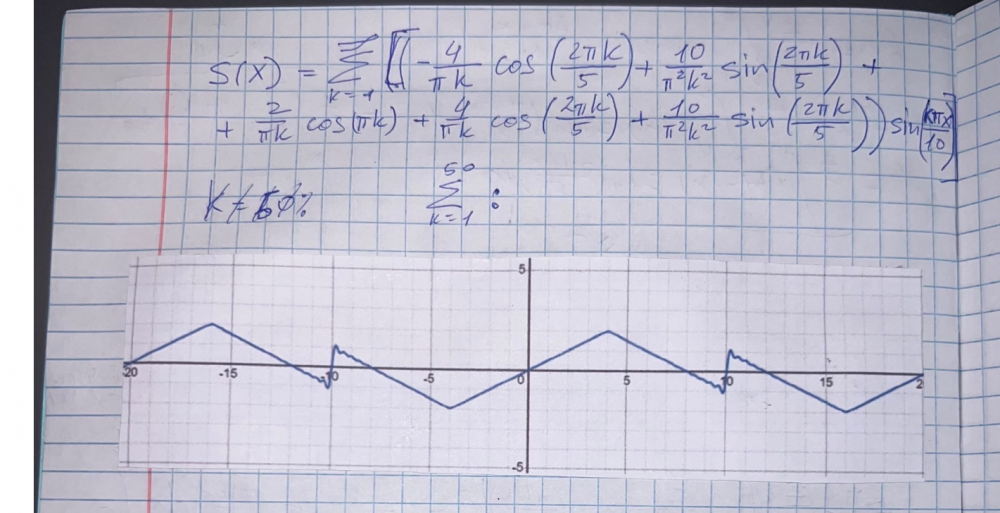 S(x) = Σ k=1 [(-4/πk cos(2πk/5) + 10/π²k² sin(2πk/5) +
+ 2/πk cos(πk) + 4/πk cos(2πk/5) + 10/π²k² sin(2πk/5)) sin(kπx/10)]
50 Σ k=1 :
5
-20 -15 -10 -5 0 5 10 15 2
-5